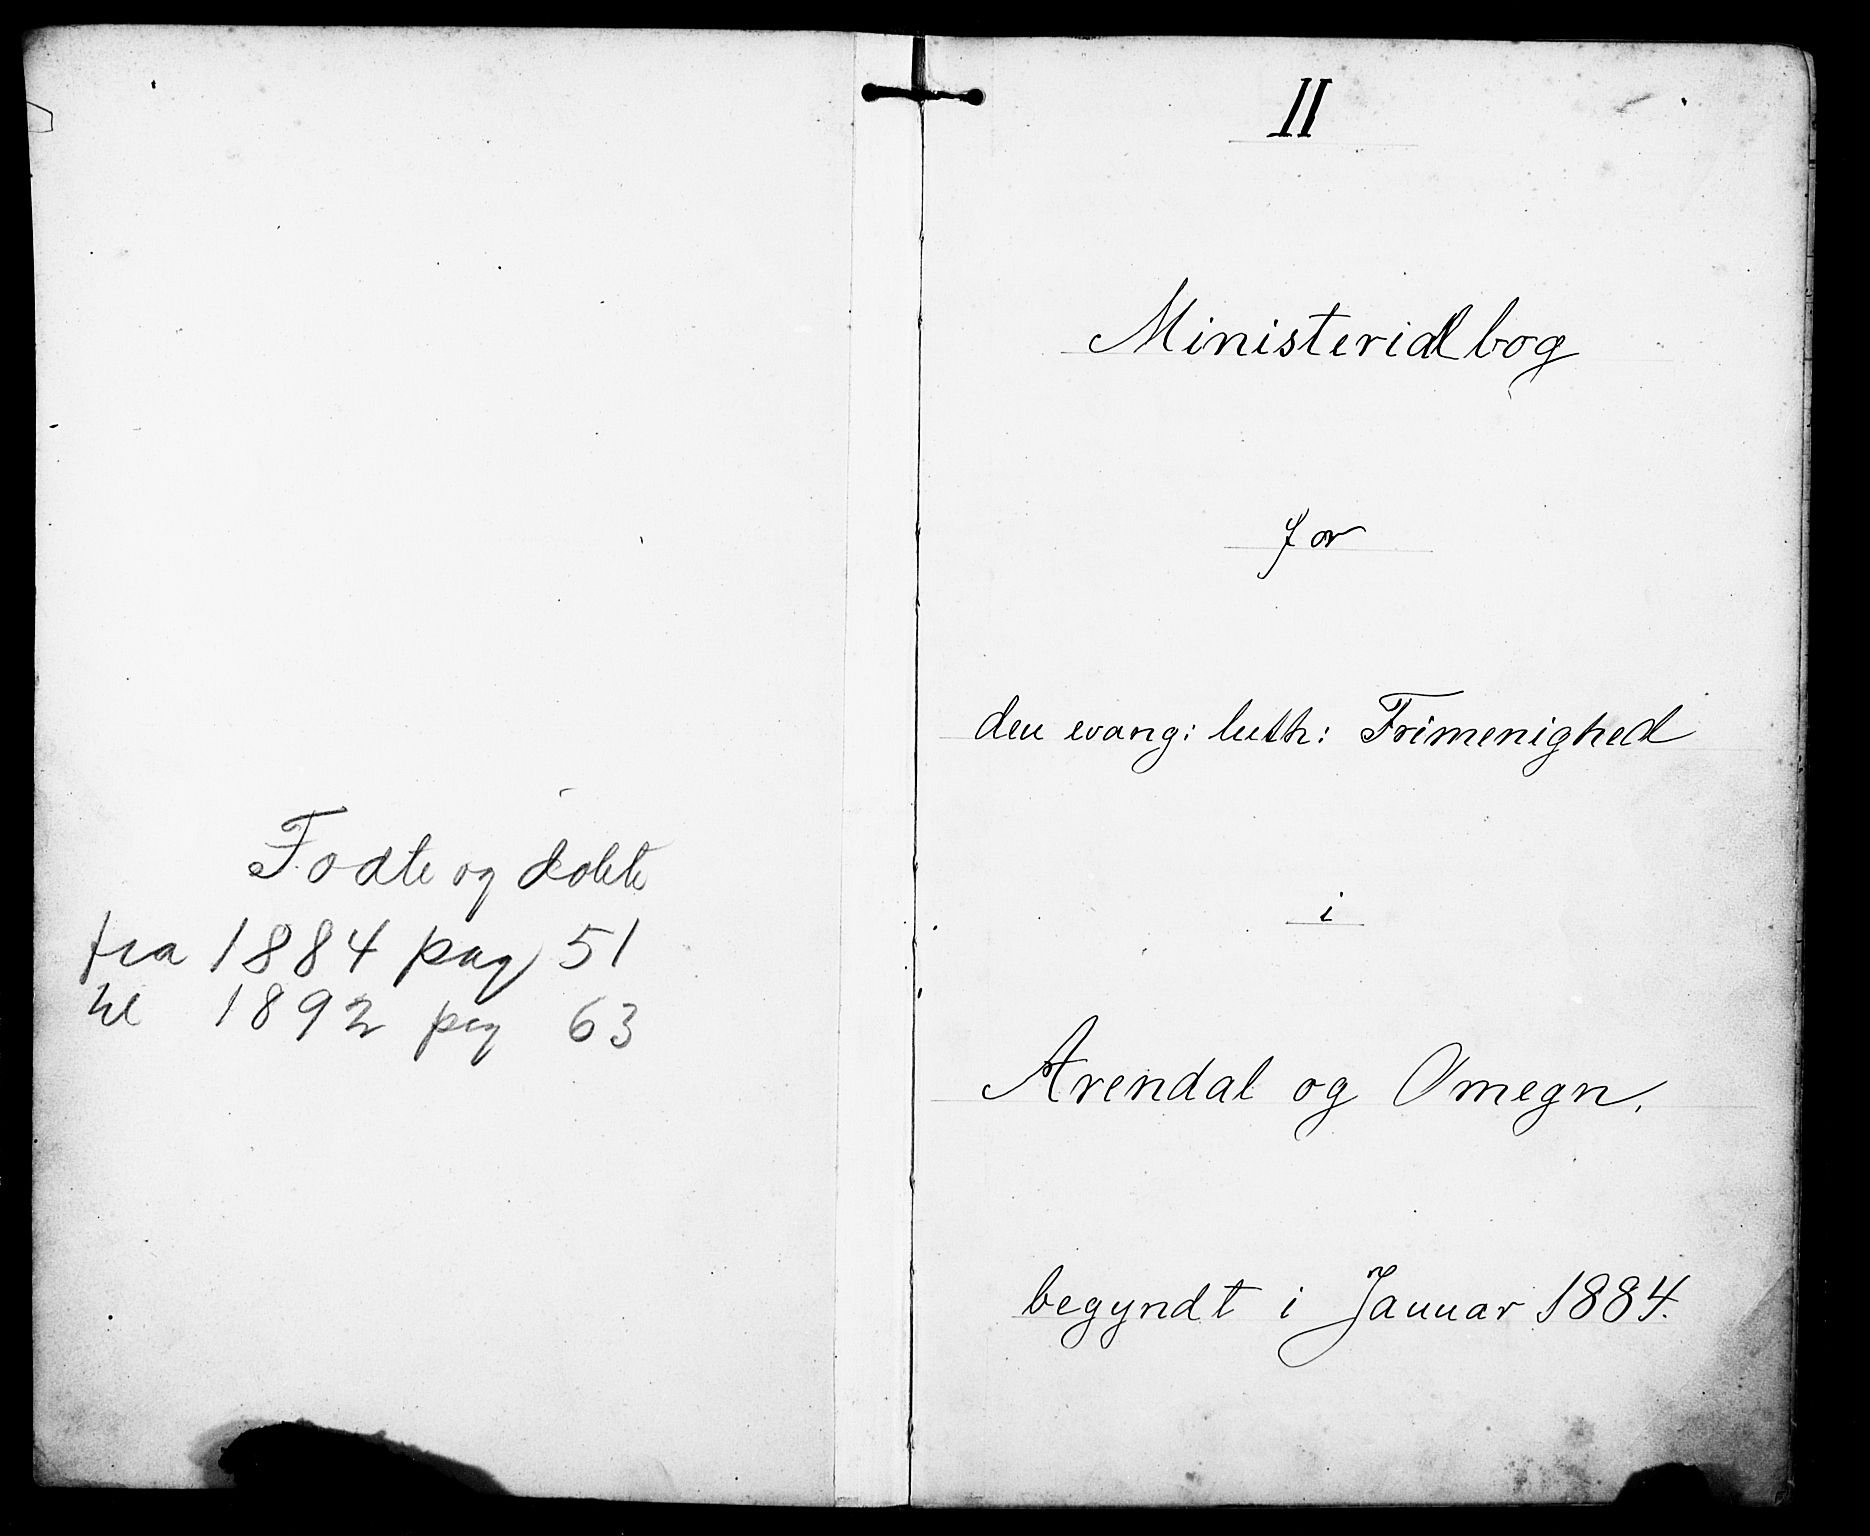 Fodte og dobte
fra 1884 pag 51
til 1892 pag 63
II
Ministerialbog
for
den evang: luth: Frimenighed
i
Arendal og Omegn.
begyndt i Januar 1884.